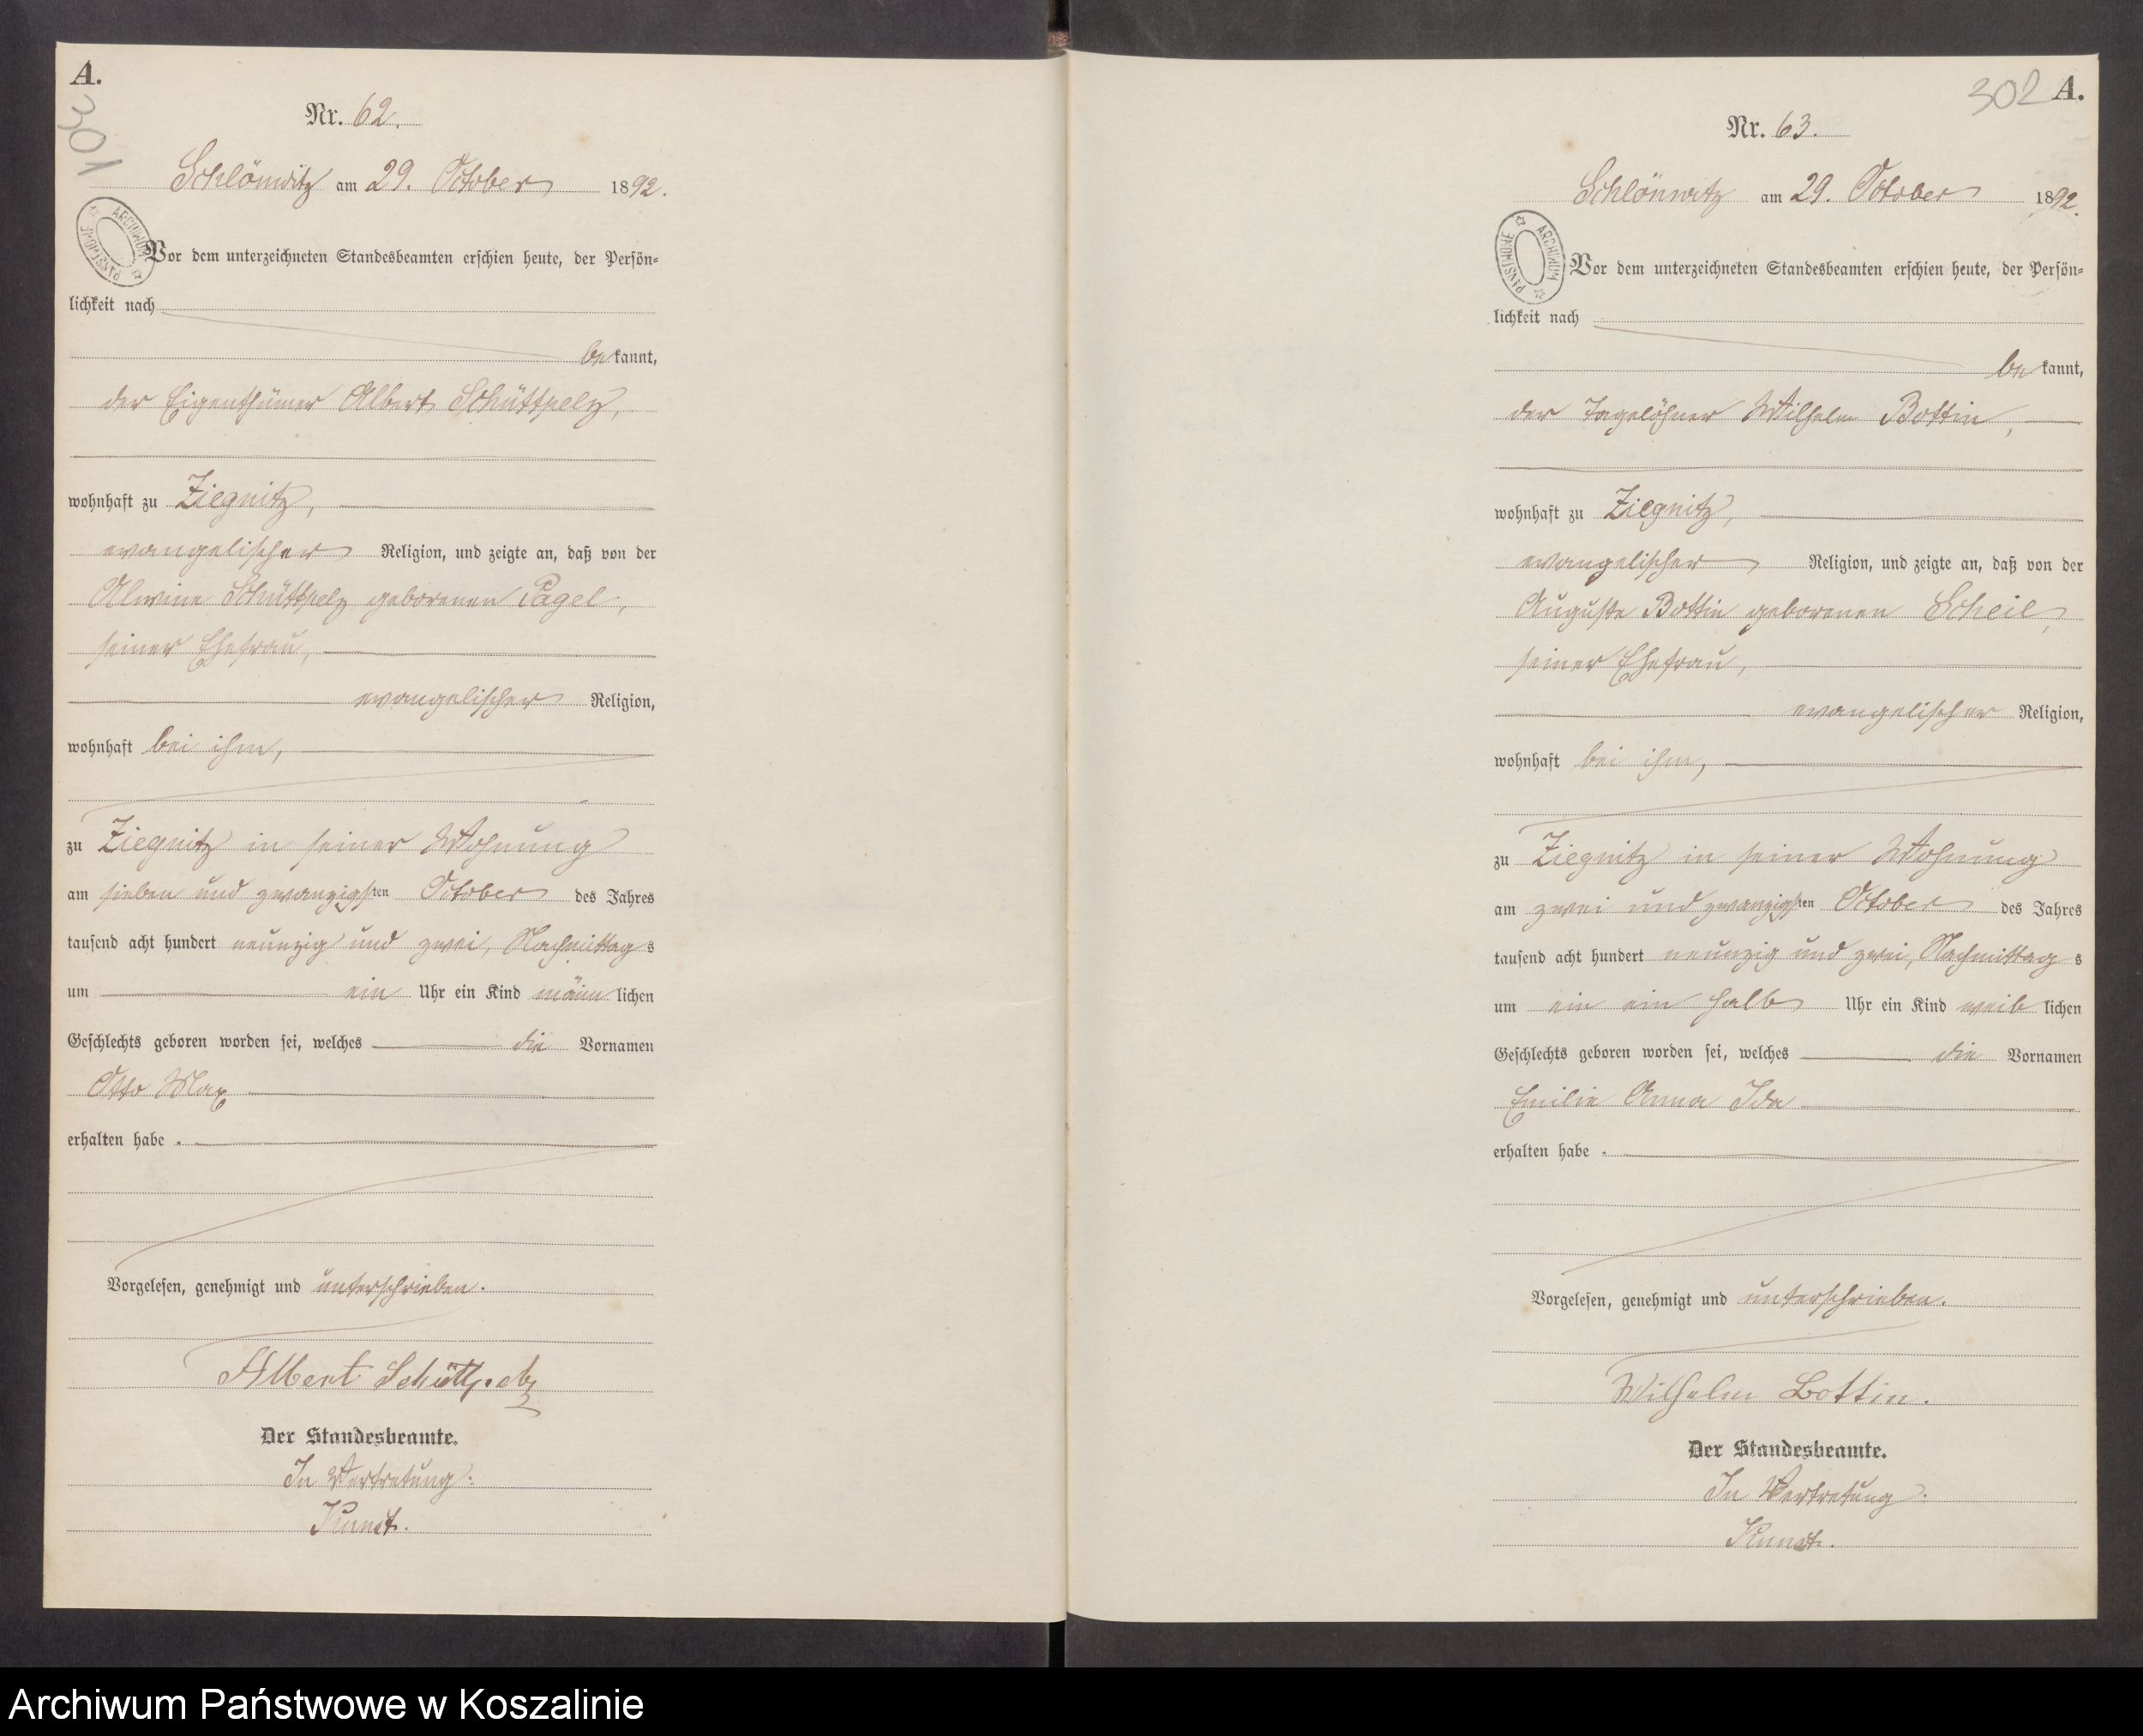 A.
301
Nr. 62.
Schlönwitz am 29. October 1892.
ARCHIWUM PAŃSTWOWE
Vor dem unterzeichneten Standesbeamten erschien heute, der Persön=
lichkeit nach
be kannt,
der Eigenthümer Albert Schüttpelz,
wohnhaft zu Ziegnitz,
evangelischer Religion, und zeigte an, daß von der
Alwine Schüttpelz geborenen Pagel,
seiner Ehefrau,
evangelischer Religion,
wohnhaft bei ihm,
zu Ziegnitz in seiner Wohnung
am sieben und zwanzigsten October des Jahres
tausend acht hundert neunzig und zwei, Nachmittag s
um ein Uhr ein Kind männ lichen
Geschlechts geboren worden sei, welches die Vornamen
Otto Max
erhalten habe .
Vorgelesen, genehmigt und unterschrieben.
Albert Schüttpelz
Der Standesbeamte.
In Vertretung:
Kunst.
302 A.
Nr. 63.
Schlönwitz am 29. October 1892.
ARCHIWUM PAŃSTWOWE
Vor dem unterzeichneten Standesbeamten erschien heute, der Persön=
lichkeit nach
be kannt,
der Tagelöhner Wilhelm Bottin,
wohnhaft zu Ziegnitz,
evangelischer Religion, und zeigte an, daß von der
Auguste Bottin geborenen Scheil,
seiner Ehefrau,
evangelischer Religion,
wohnhaft bei ihm,
zu Ziegnitz in seiner Wohnung
am zwei und zwanzigsten October des Jahres
tausend acht hundert neunzig und zwei, Nachmittag s
um ein ein halb Uhr ein Kind weib lichen
Geschlechts geboren worden sei, welches die Vornamen
Emilie Anna Ida
erhalten habe .
Vorgelesen, genehmigt und unterschrieben.
Wilhelm Bottin.
Der Standesbeamte.
In Vertretung:
Kunst.
Archiwum Państwowe w Koszalinie